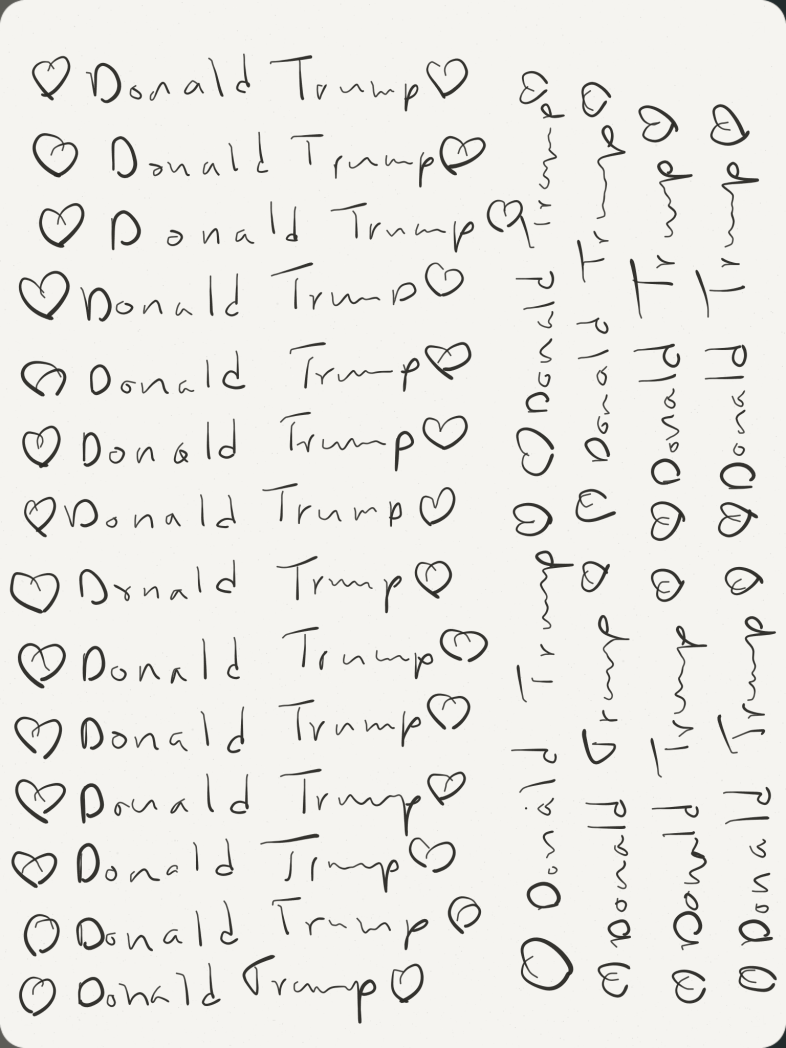 ♡ Donald Trump ♡
♡ Donald Trump ♡
♡ Donald Trump ♡
♡ Donald Trump ♡
♡ Donald Trump ♡
♡ Donald Trump ♡
♡ Donald Trump ♡
♡ Drnald Trump ♡
♡ Donald Trump ♡
♡ Donald Trump ♡
♡ Donald Trump ♡
♡ Donald Trump ♡
♡ Donald Trump ♡
♡ Donald Trump ♡
♡ Donald Trump ♡
♡ Donald Trump ♡
♡ Donald Trump ♡
♡ Donald Trump ♡
♡ Donald Trump ♡
♡ Donald Trump ♡
♡ Donald Trump ♡
♡ Donald Trump ♡